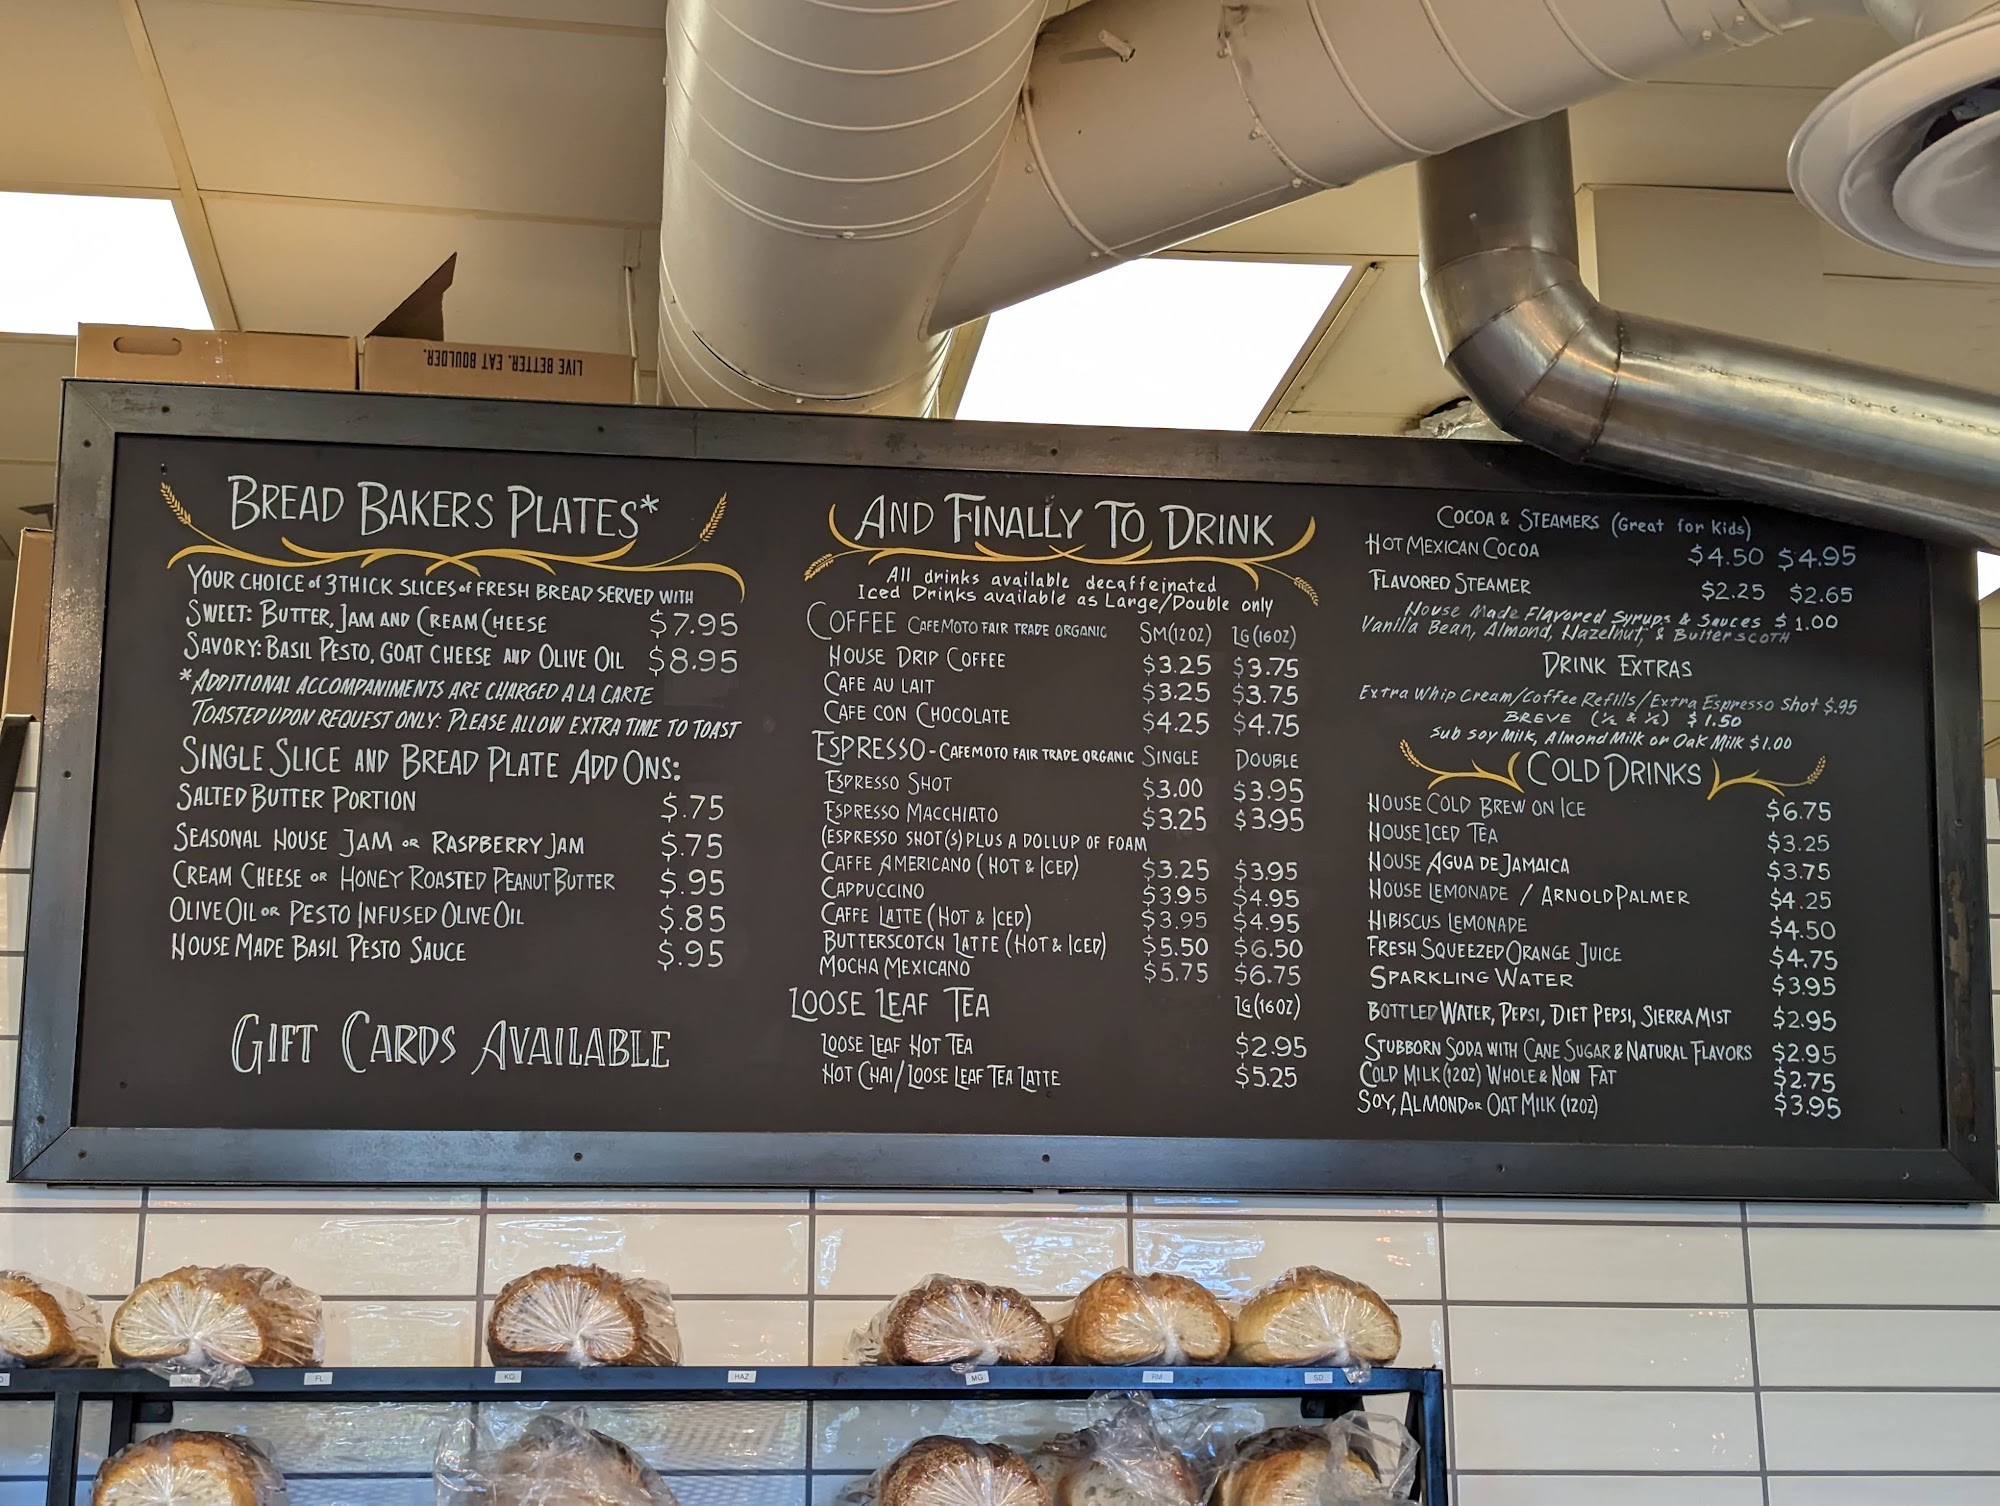 LIVE BETTER. EAT BOULDER.
BREAD BAKERS PLATES*
YOUR CHOICE of 3 THICK SLICES of FRESH BREAD SERVED WITH
SWEET: BUTTER, JAM AND CREAM CHEESE $7.95
SAVORY: BASIL PESTO, GOAT CHEESE AND OLIVE OIL $8.95
*ADDITIONAL ACCOMPANIMENTS ARE CHARGED A LA CARTE
TOASTED UPON REQUEST ONLY: PLEASE ALLOW EXTRA TIME TO TOAST
SINGLE SLICE AND BREAD PLATE ADD ONS:
SALTED BUTTER PORTION $.75
SEASONAL HOUSE JAM OR RASPBERRY JAM $.75
CREAM CHEESE OR HONEY ROASTED PEANUT BUTTER $.95
OLIVE OIL OR PESTO INFUSED OLIVE OIL $.85
HOUSE MADE BASIL PESTO SAUCE $.95
GIFT CARDS AVAILABLE
AND FINALLY TO DRINK
All drinks available decaffeinated
Iced Drinks available as Large/Double only
COFFEE CAFEMOTO FAIR TRADE ORGANIC SM(12OZ) LG(16OZ)
HOUSE DRIP COFFEE $3.25 $3.75
CAFE AU LAIT $3.25 $3.75
CAFE CON CHOCOLATE $4.25 $4.75
ESPRESSO-CAFEMOTO FAIR TRADE ORGANIC SINGLE DOUBLE
ESPRESSO SHOT $3.00 $3.95
ESPRESSO MACCHIATO $3.25 $3.95
(ESPRESSO SHOT(S) PLUS A DOLLUP OF FOAM
CAFFE AMERICANO (HOT & ICED) $3.25 $3.95
CAPPUCCINO $3.95 $4.95
CAFFE LATTE (HOT & ICED) $3.95 $4.95
BUTTERSCOTCH LATTE (HOT & ICED) $5.50 $6.50
MOCHA MEXICANO $5.75 $6.75
LOOSE LEAF TEA LG(16OZ)
LOOSE LEAF HOT TEA $2.95
HOT CHAI/LOOSE LEAF TEA LATTE $5.25
COCOA & STEAMERS (Great for Kids)
HOT MEXICAN COCOA $4.50 $4.95
FLAVORED STEAMER $2.25 $2.65
House Made Flavored Syrups & Sauces $1.00
Vanilla Bean, Almond, Hazelnut, & Butterscoth
DRINK EXTRAS
Extra Whip Cream/Coffee Refills/Extra Espresso Shot $.95
BREVE (½ & ½) $1.50
Sub Soy Milk, Almond Milk or Oak Milk $1.00
COLD DRINKS
HOUSE COLD BREW ON ICE $6.75
HOUSE ICED TEA $3.25
HOUSE AGUA DE JAMAICA $3.75
HOUSE LEMONADE / ARNOLD PALMER $4.25
HIBISCUS LEMONADE $4.50
FRESH SQUEEZED ORANGE JUICE $4.75
SPARKLING WATER $3.95
BOTTLED WATER, PEPSI, DIET PEPSI, SIERRA MIST $2.95
STUBBORN SODA WITH CANE SUGAR & NATURAL FLAVORS $2.95
COLD MILK (12OZ) WHOLE & NON FAT $2.75
SOY, ALMOND OR OAT MILK (12OZ) $3.95
RM FL KG HAZ MG RM SD